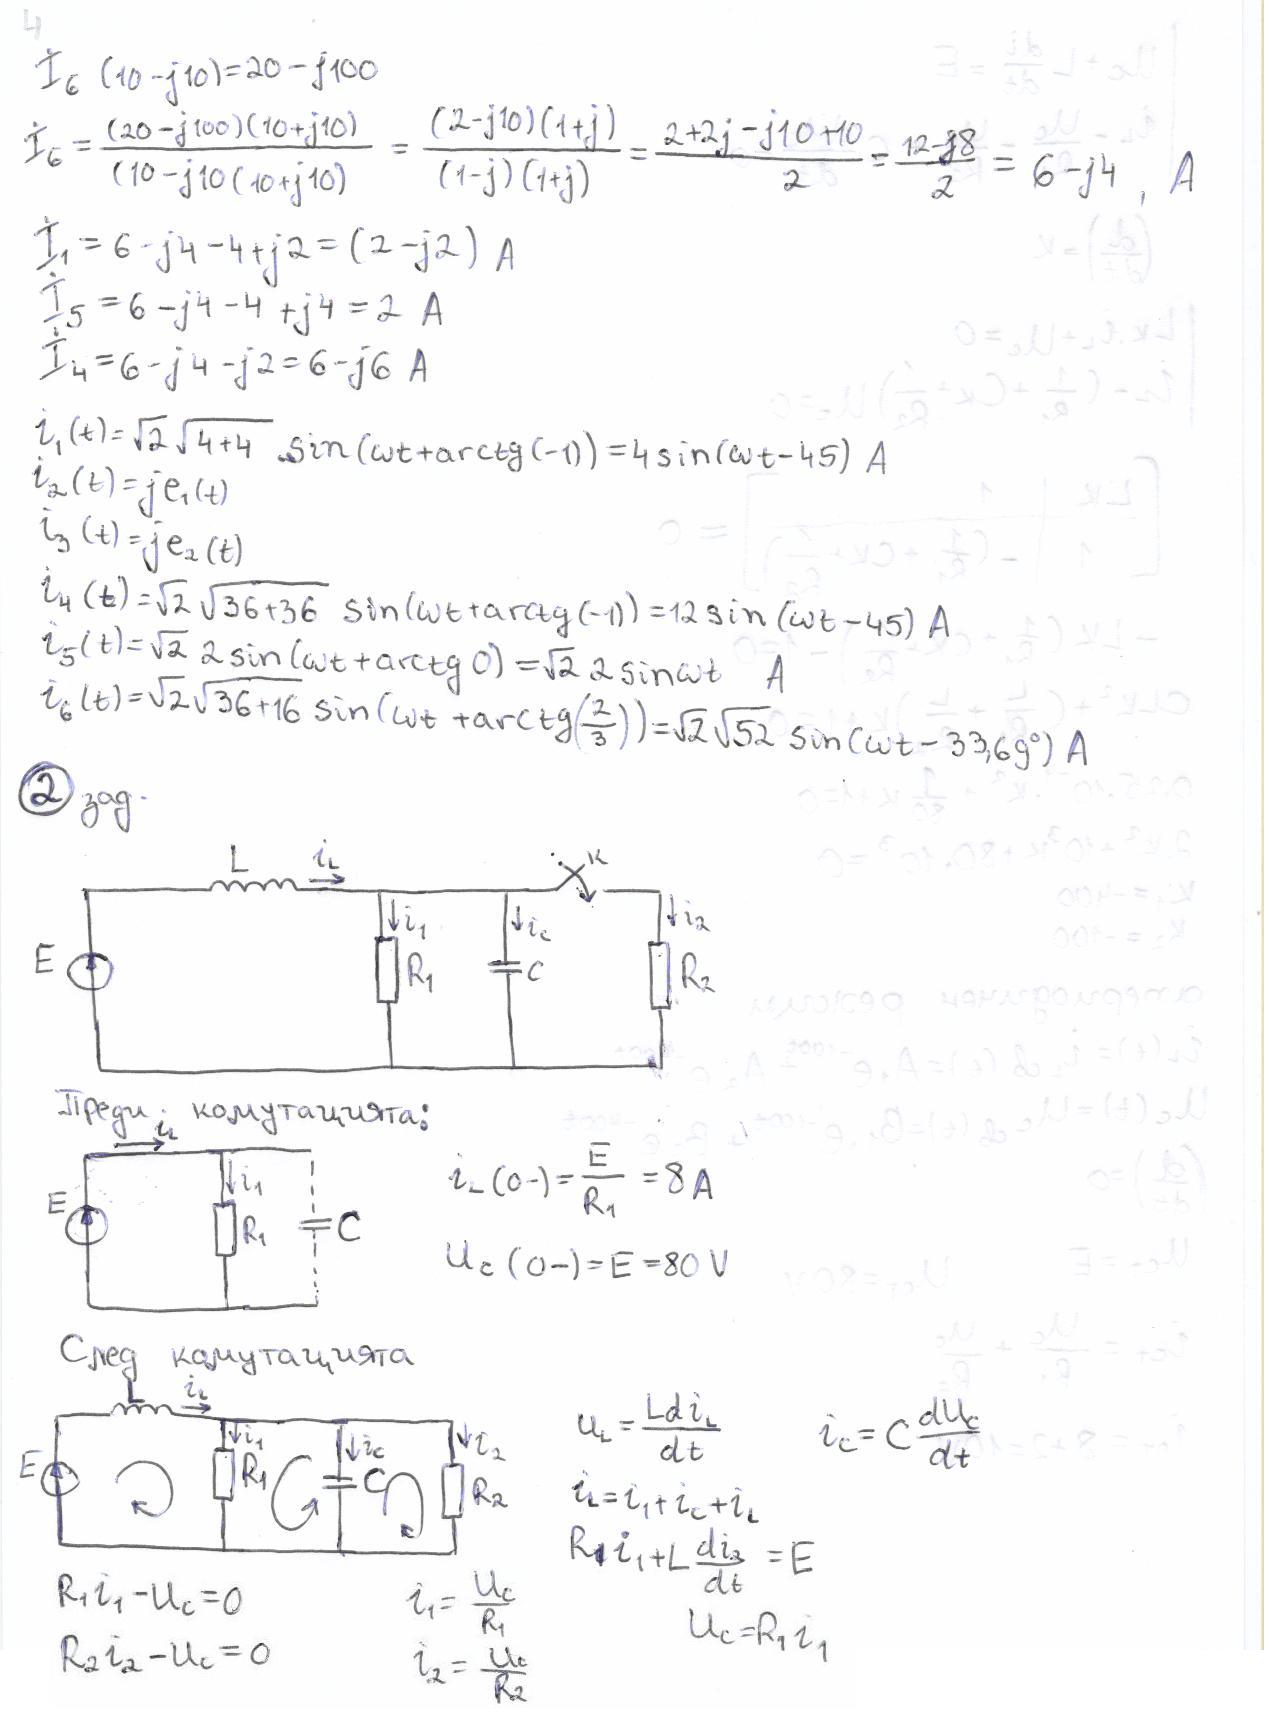 4
İ₆ (10-j10)=20-j100
İ₆ = (20-j100)(10+j10) / (10-j10(10+j10) = (2-j10)(1+j) / (1-j)(1+j) = 2+2j-j10+10 / 2 = 12-j8 / 2 = 6-j4, A
İ₁ = 6-j4-4+j2=(2-j2) A
İ₅ = 6-j4-4+j4=2 A
İ₄ = 6-j4-j2=6-j6 A
i₁(t)=√2 √4+4 .sin(ωt+arctg(-1))=4sin(ωt-45) A
i₂(t)=je₁(t)
i₃(t)=je₂(t)
i₄(t)=√2 √36+36 sin(ωt+arctg(-1))=12sin(ωt-45) A
i₅(t)=√2 2sin(ωt+arctg0)=√2 2sinωt A
i₆(t)=√2 √36+16 sin(ωt+arctg(2/3))=√2 √52 sin(ωt-33,69°) A
② зад.
L iL K
E i₁ R₁ ic C i₂ R₂
Преди комутацията:
iL
E i₁ R₁ C
iL(0-)=E/R₁=8A
Uc(0-)=E=80V
След комутацията
L iL
E i₁ R₁ ic C i₂ R₂
uL=LdiL/dt ic=C dUc/dt
iL=i₁+ic+iL
R₁i₁+L di₂/dt=E
R₁i₁-Uc=0 i₁=Uc/R₁ Uc=R₁i₁
R₂i₂-Uc=0 i₂=Uc/R₂